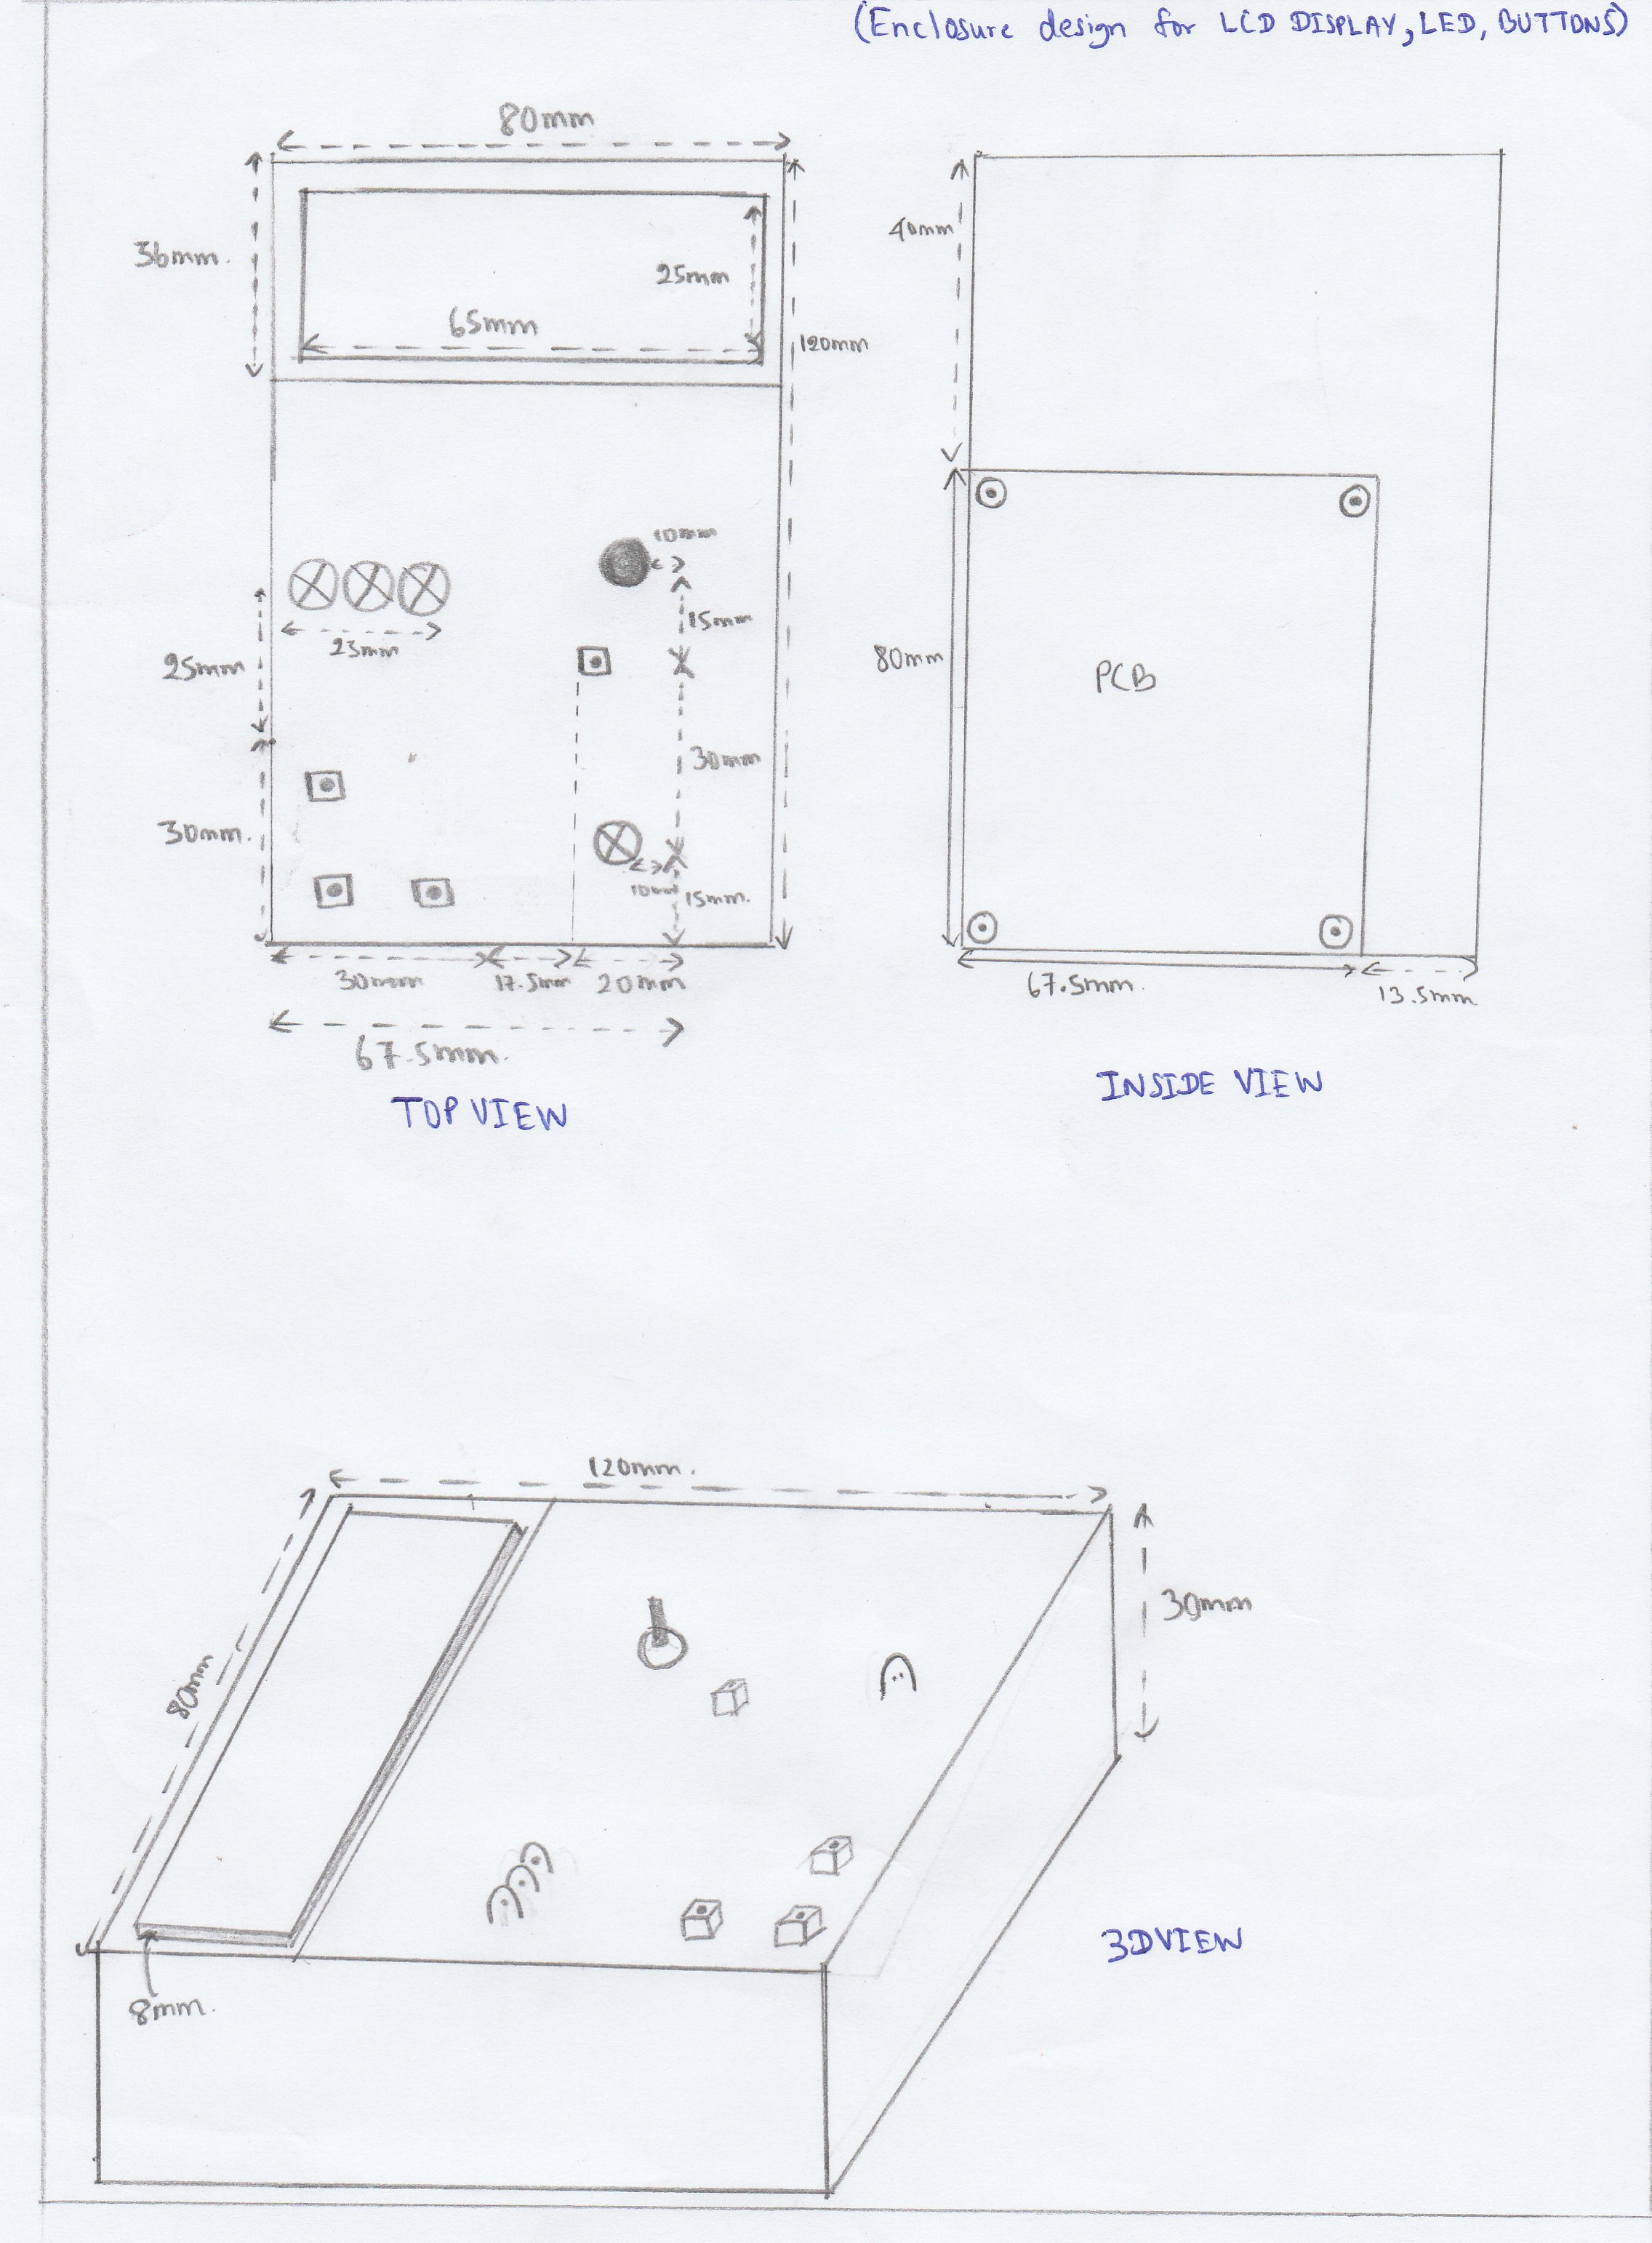 (Enclosure design for LCD DISPLAY, LED, BUTTONS)
80mm
36mm.
25mm
65mm
120mm
10mm
15mm
23mm
25mm
30mm
30mm.
10mm
15mm.
30mm
17.5mm
20mm
67.5mm.
TOP VIEW
40mm
80mm
PCB
67.5mm.
13.5mm
INSIDE VIEW
120mm.
30mm
80mm
8mm.
3D VIEW